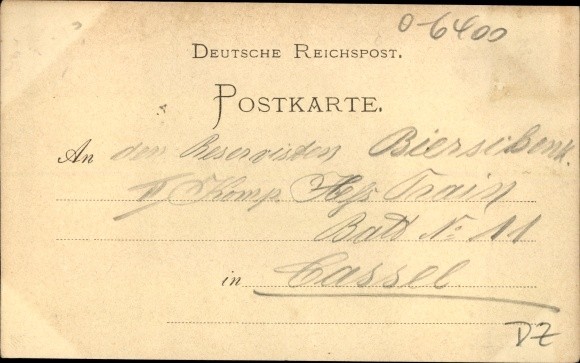 0-6400
DEUTSCHE REICHSPOST.
POSTKARTE.
An den Reservisten Bierschenk.
II Komp. Hess Train
Batt No: 11
in Cassel
DZ